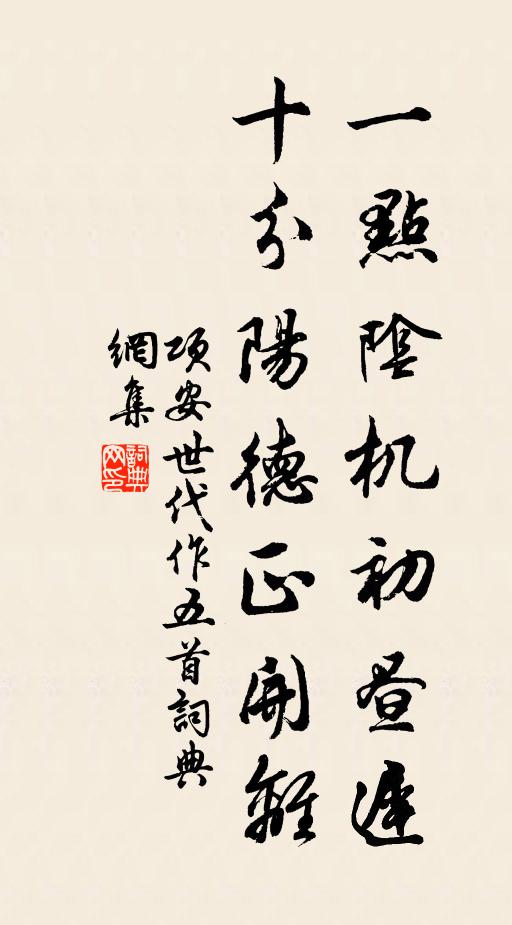 一點陰机初昼遲
十分陽德正開離
項安世代作五首詞典
網集
詞典
网印